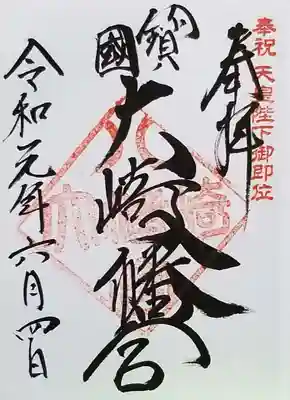 奉祝 天皇陛下御即位
奉拝
鎮國
大崎八幡宮
令和元年六月四日